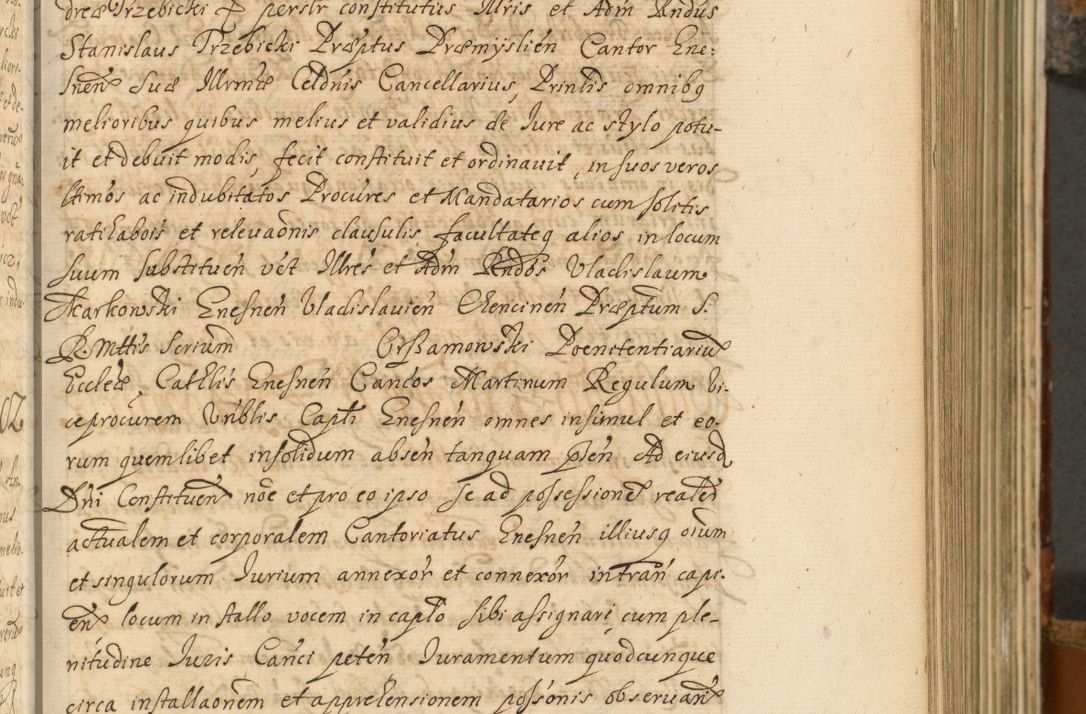 dreæ Trzebicki & perslr constitutus Illris et Adm Rndus
Stanislaus Trzebicki Præptus Præmyslien Cantor Gne:
snen Suæ Illrmæ Celdnis Cancellarius, Printis omnibq
melioribus quibus melius et validius de Iure ac stylo potu-
it et debuit modis, fecit constituit et ordinauit, in suos veros
ltimos ac indubitatos Procures et Mandatarios cum solitis
ratihabois et releuaonis clausulis, facultateq alios in locum
suum substituen vct Illres et Adm Rndos Vladislaum
Skarkowski Gnesnen Vladislauien Chencinen Præptum S.
R. Mttis Scrium Grszamowski Poenitentiariu
Eccleæ Cathlis Gnesnen Cancos Martinum Regulum Vi-
ceprocurem Vnblis Capti Gnesnen omnes insimul et eo-
rum quemlibet insolidum absen tanquam psen Ad eiusd
Dni Constituen noe et pro eo ipso se ad possessione realem
actualem et corporalem Cantoriatus Gnesnen illiusq oium
et singulorum Iurium annexor et connexor intran capi-
en locum in stallo vocem in caplo sibi assignari cum ple-
nitudine Iuris Canci peten Iuramentum quodcunque
circa installaonem et apprehensionem possonis obseruari